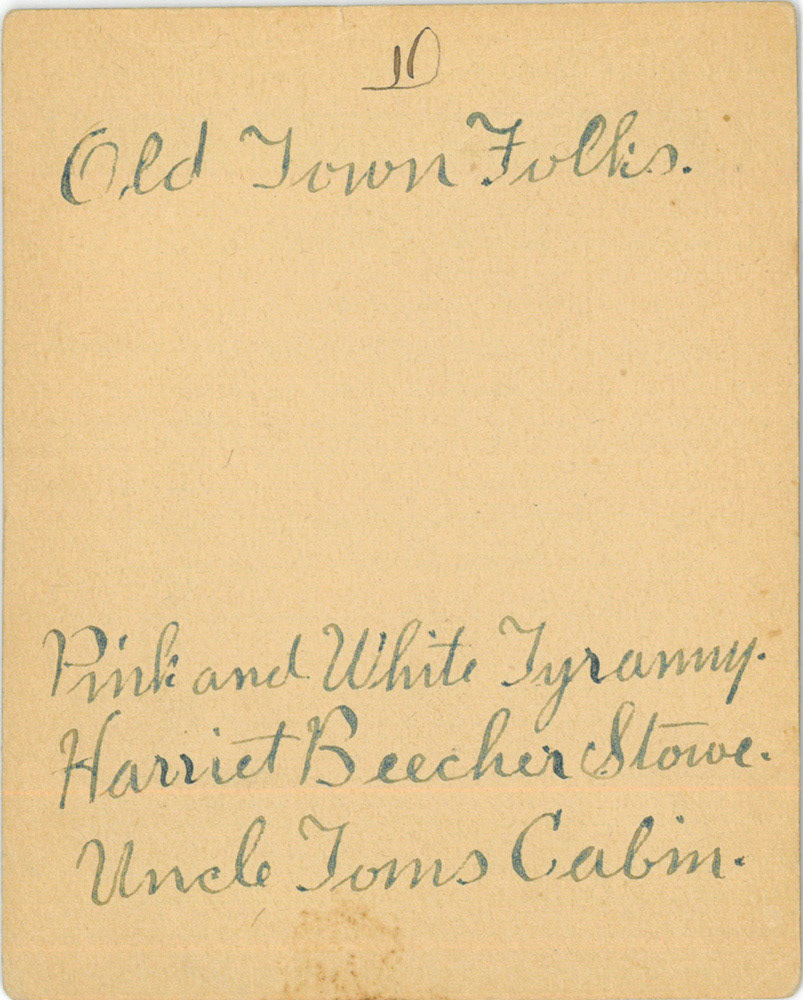 Old Town Folks.
Pink and White Tyranny.
Harriet Beecher Stowe.
Uncle Toms Cabin.